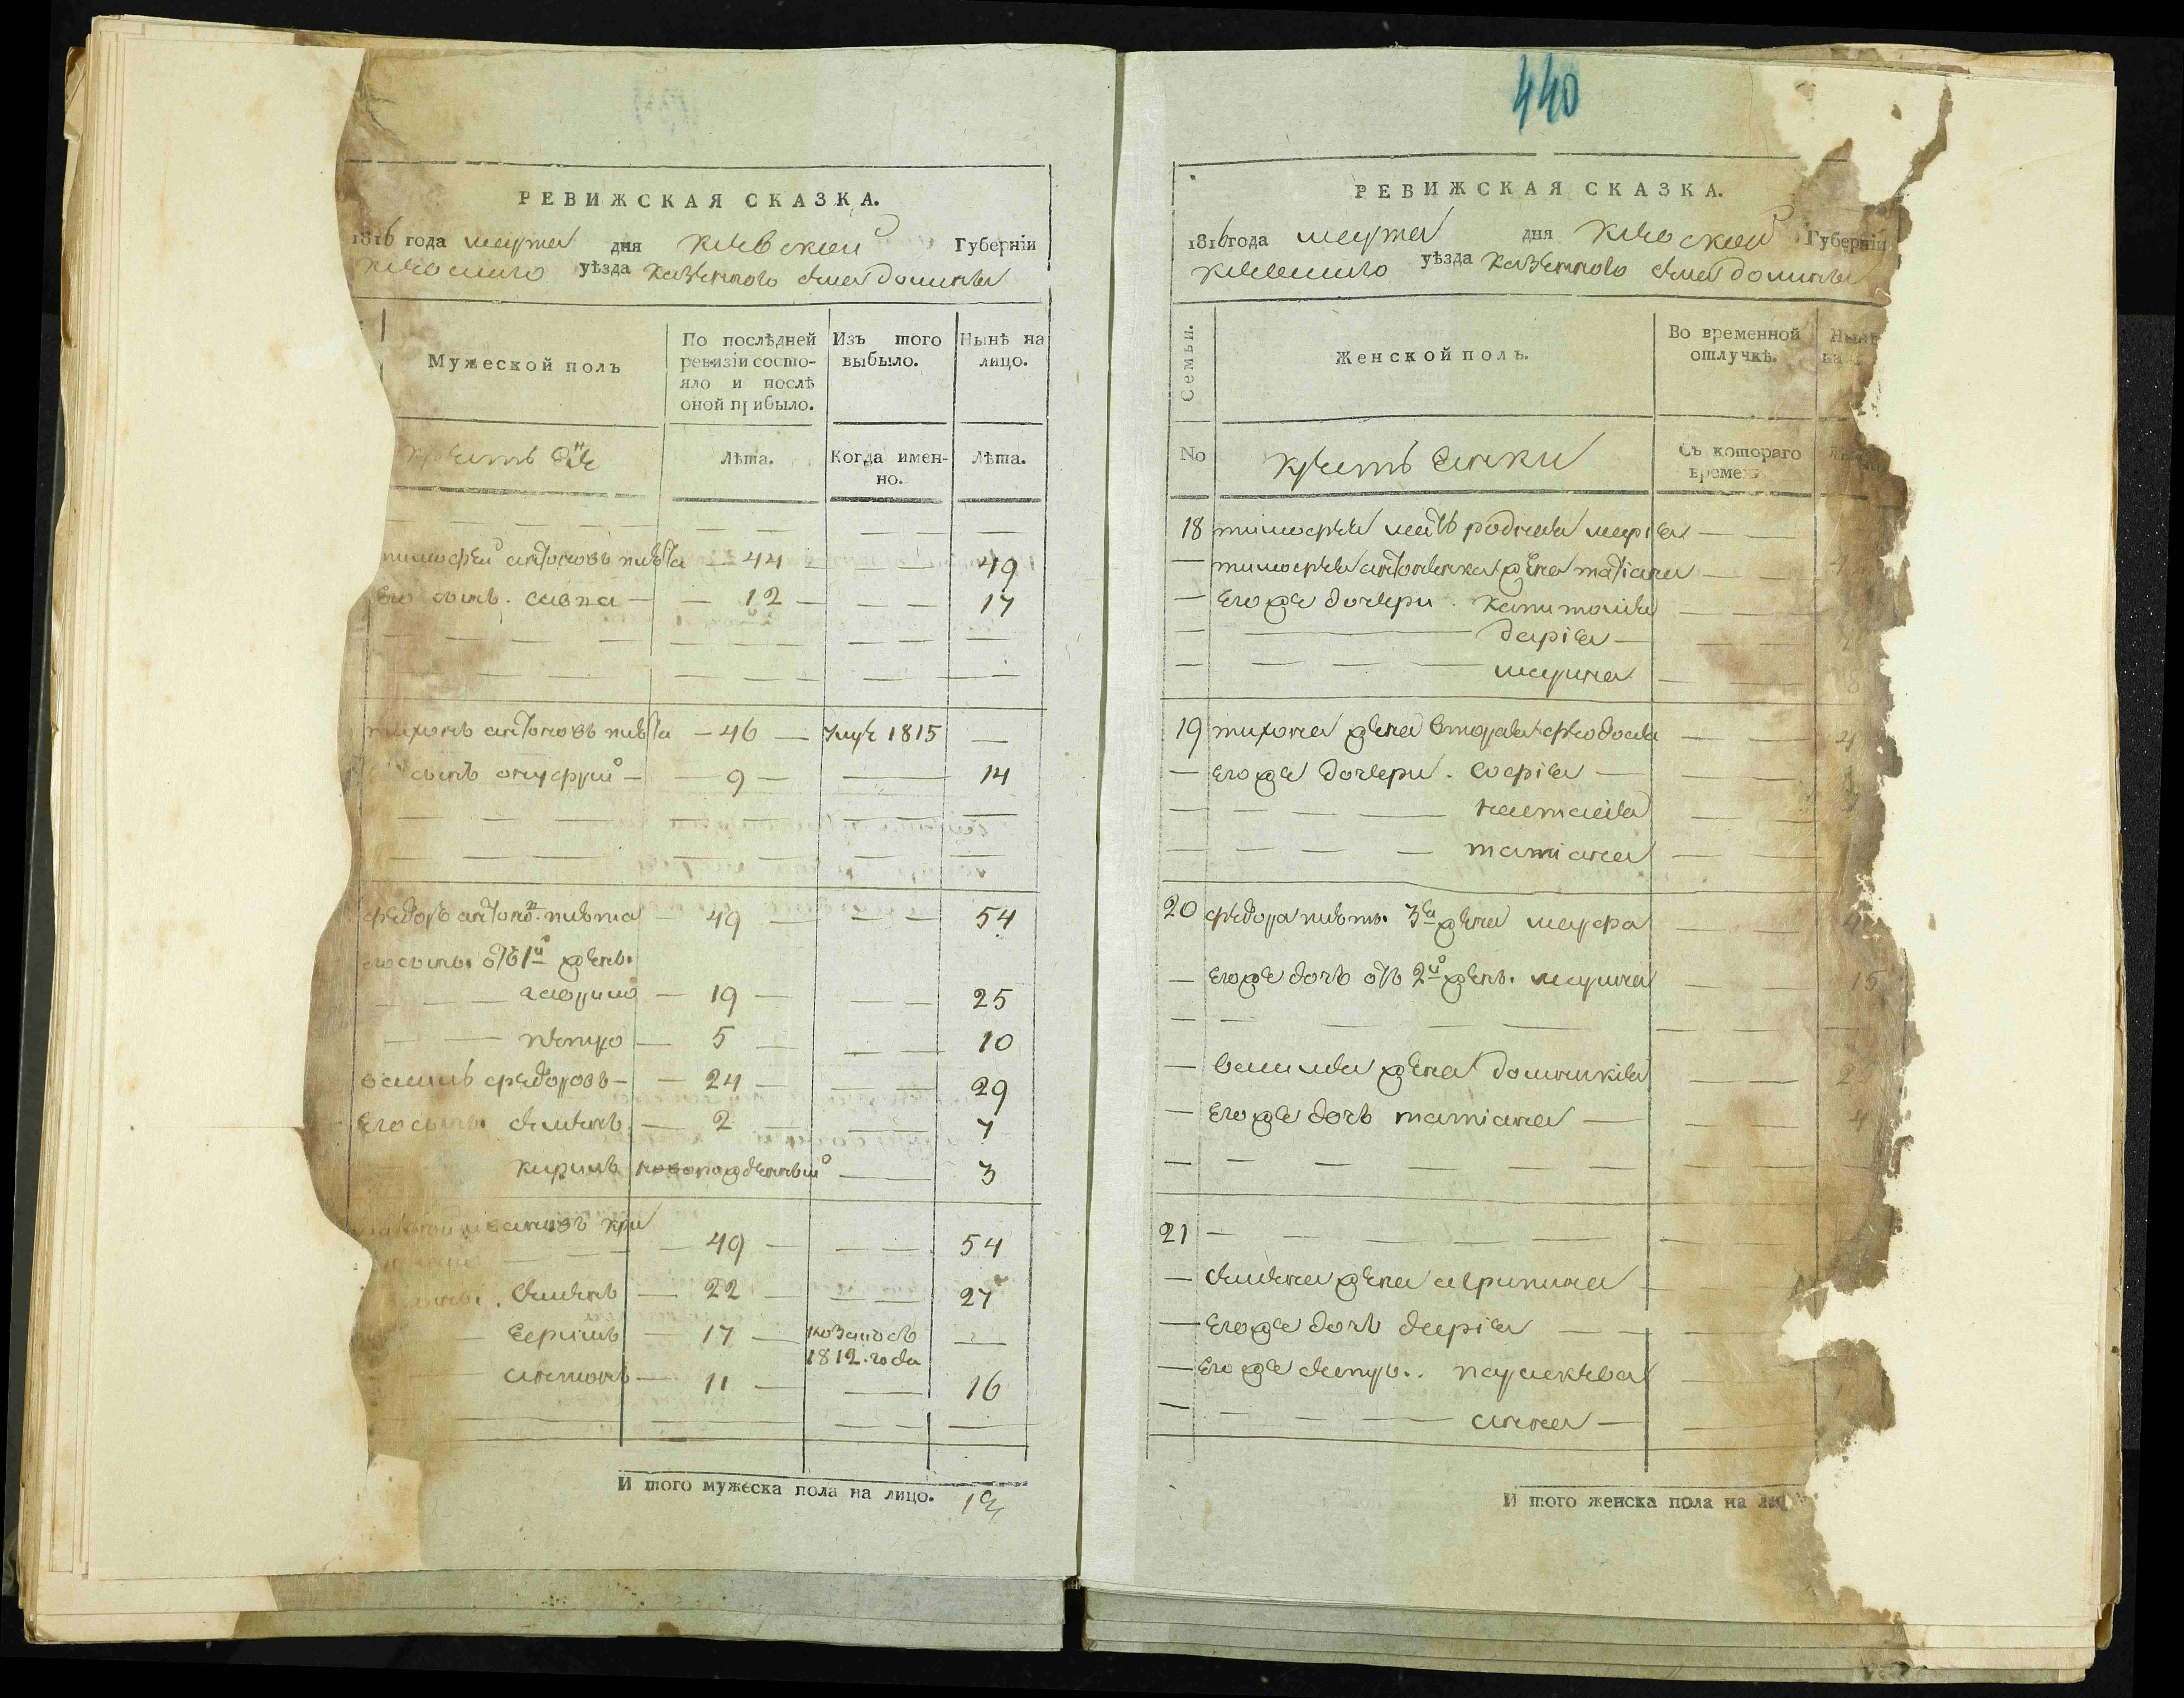 440
РЕВИЖСКАЯ СКАЗКА.
1816 года марта дня Киевской Губерніи
Киевского уѣзда казенного села домины
Мужеской полъ
По послѣдней ревизіи состо-
яло и послѣ
оной прибыло.
Изъ того
выбыло.
Нынѣ на
лицо.
Лѣта.
Когда имен-
но.
Лѣта.
тимофей антоновъ 44 49
Его сынъ. савка 12 17
тихонъ антоновъ 46 умре 1815
сынъ онуфрий 9 14
федоръ антоно. 49 54
его сынъ. отъ 1й жены.
гаврило 19 25
петро 5 10
василь федоровъ 24 29
Его сынъ. семенъ 2 7
кирилъ новорожденный 3
49 54
семенъ 22 27
Ефримъ 17
1812. года
антонъ 11 16
И того мужеска пола на лицо. 12
РЕВИЖСКАЯ СКАЗКА.
1816 года марта дня Киевской Губерніи
Киевского уѣзда казенного села домины
Семьи.
Женской полъ.
Во временной
отлучкѣ.
Нынѣ
на
No
Съ котораго
времени
18 тимофея мать родная марія
тимофея антоненка жена татіана
Его же дочери. капитолия
дарія
марина
19 тихона жена вторая феодосия
его же дочери. софія
настасия
татиана
20 федора 3я жена марфа
Его же дочь отъ 2й жены. марина 15
василия жена доминикия
Его же дочь татиана 4
21
семена жена агрипина
Его же дочь дарія
Его же сестры.. параскева
анна
И того женска пола на